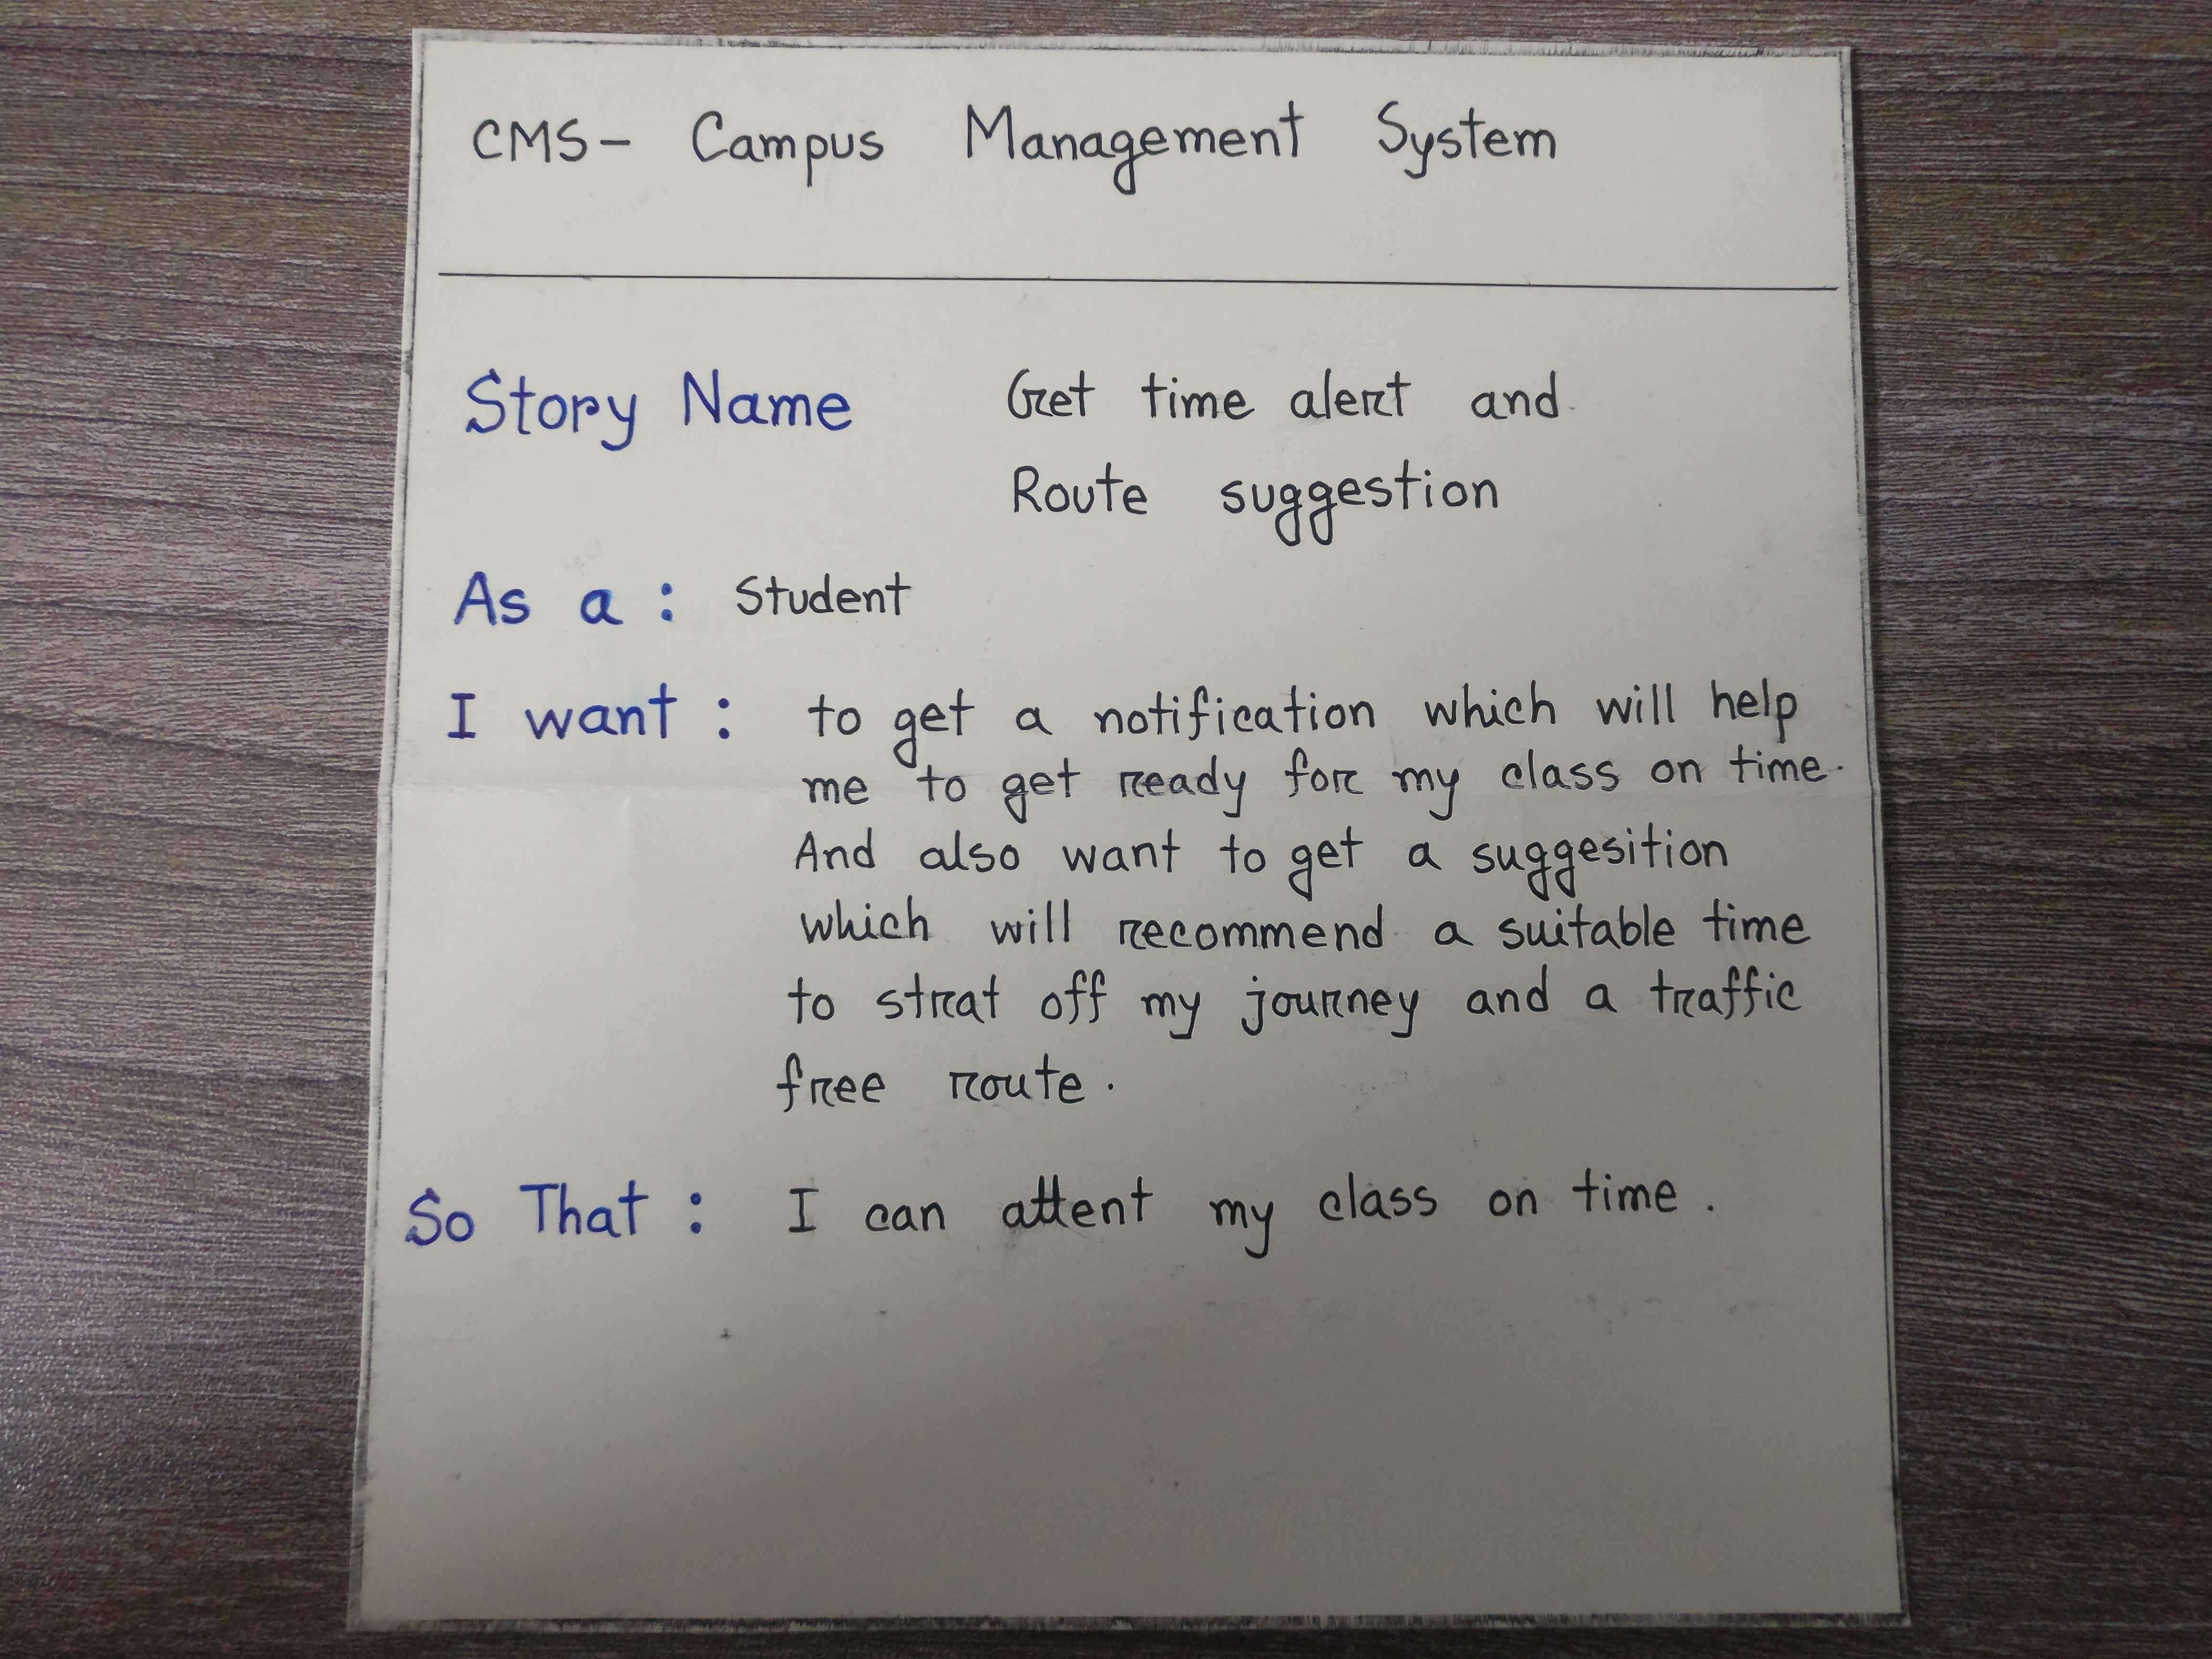 CMS- Campus Management System
Story Name Get time alert and
Route suggestion
As a : Student
I want : to get a notification which will help
me to get ready for my class on time.
And also want to get a suggesition
which will recommend a suitable time
to strat off my journey and a traffic
free route.
So That : I can attent my class on time.